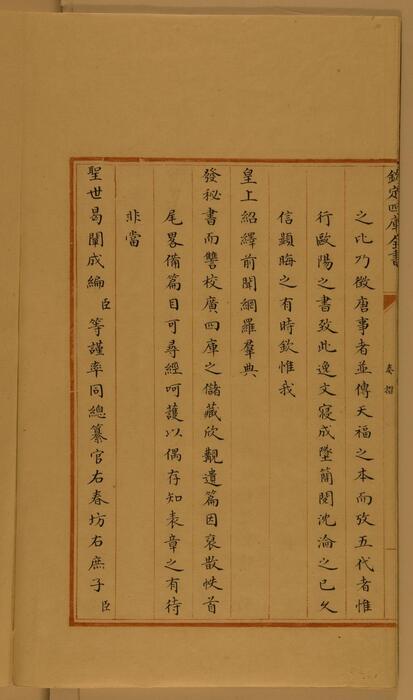 欽定四庫全書
奏摺
之比乃徴唐事者並傳天福之本而攷五代者惟
行歐陽之書致此逸文寖成墜簡閱沈淪之已久
信顯晦之有時欽惟我
皇上紹繹前聞網羅羣典
發秘書而讐校廣四庫之儲藏欣覩遺篇因裒散帙首
尾畧備篇目可尋經呵護以偶存知表章之有待
非當
聖世曷闡成編臣等謹率同總纂官右春坊右庶子臣